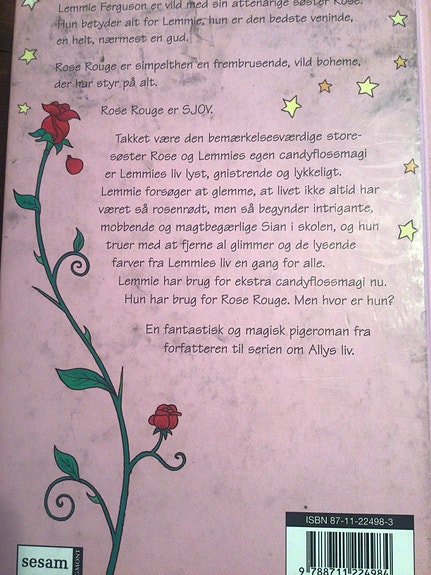 Lemmie Ferguson er vild med sin attenårige søster Rose.
Hun betyder alt for Lemmie, hun er den bedste veninde,
en helt, nærmest en gud.
Rose Rouge er simpelthen en frembrusende, vild boheme,
der har styr på alt.
Rose Rouge er SJOV.
Takket være den bemærkelsesværdige store-
søster Rose og Lemmies egen candyflossmagi
er Lemmies liv lyst, gnistrende og lykkeligt.
Lemmie forsøger at glemme, at livet ikke altid har
været så rosenrødt, men så begynder intrigante,
mobbende og magtbegærlige Sian i skolen, og hun
truer med at fjerne al glimmer og de lysende
farver fra Lemmies liv en gang for alle.
Lemmie har brug for ekstra candyflossmagi nu.
Hun har brug for Rose Rouge. Men hvor er hun?
En fantastisk og magisk pigeroman fra
forfatteren til serien om Allys liv.
ISBN 87-11-22498-3
9 788711 224984
sesam
EGMONT